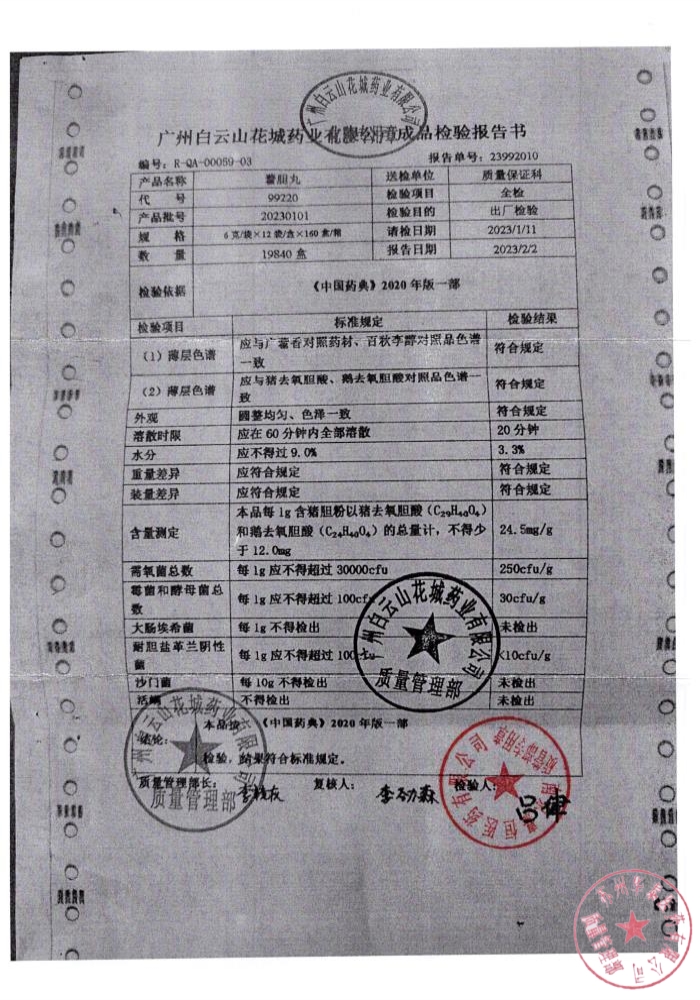 广州白云山花城药业有限公司成品检验报告书
编号：R-QA-00059-03 报告单号：23992010
产品名称 藿胆丸 送检单位 质量保证科
代 号 99220 检验项目 全检
产品批号 20230101 检验目的 出厂检验
规 格 6克/袋×12袋/盒×160盒/箱 请检日期 2023/1/11
数 量 19840盒 报告日期 2023/2/2
检验依据 《中国药典》2020年版一部
检验项目 标准规定 检验结果
（1）薄层色谱 应与广藿香对照药材、百秋李醇对照品色谱
一致 符合规定
（2）薄层色谱 应与猪去氧胆酸、鹅去氧胆酸对照品色谱一
致 符合规定
外观 圆整均匀、色泽一致 符合规定
溶散时限 应在60分钟内全部溶散 20分钟
水分 应不得过9.0% 3.3%
重量差异 应符合规定 符合规定
装量差异 应符合规定 符合规定
含量测定 本品每1g含猪胆粉以猪去氧胆酸（C₂₉H₄₀O₄）
和鹅去氧胆酸（C₂₄H₄₀O₄）的总量计，不得少
于12.0mg 24.5mg/g
需氧菌总数 每1g应不得超过30000cfu 250cfu/g
霉菌和酵母菌总
数 每1g应不得超过100cfu 30cfu/g
大肠埃希菌 每1g不得检出 未检出
耐胆盐革兰阴性
菌 每1g应不得超过100cfu <10cfu/g
沙门菌 每10g不得检出 未检出
活螨 不得检出 未检出
结论： 本品按 《中国药典》2020年版一部
检验，结果符合标准规定。
质量管理部长： 复核人： 检验人：
李劲森 吕律
广州白云山花城药业有限公司
广州白云山花城药业有限公司
质量管理部
广州白云山花城药业有限公司
质量管理部